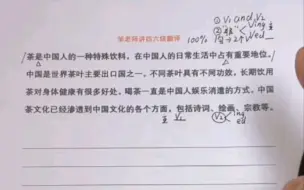 学老师讲四六级翻译
① V1 and V2
② "但" ing
100% 两个动 Ved
茶是中国人的一种特殊饮料，在中国人的日常生活中占有重要地位。
中国是世界茶叶主要出口国之一，不同茶具有不同功效，长期饮用
茶对身体健康有很多好处，喝茶一直是中国人娱乐消遣的方式，中国
茶文化已经渗透到中国文化的各个方面，包括诗词、绘画、宗教等。
主 V2 V2 ing
ed